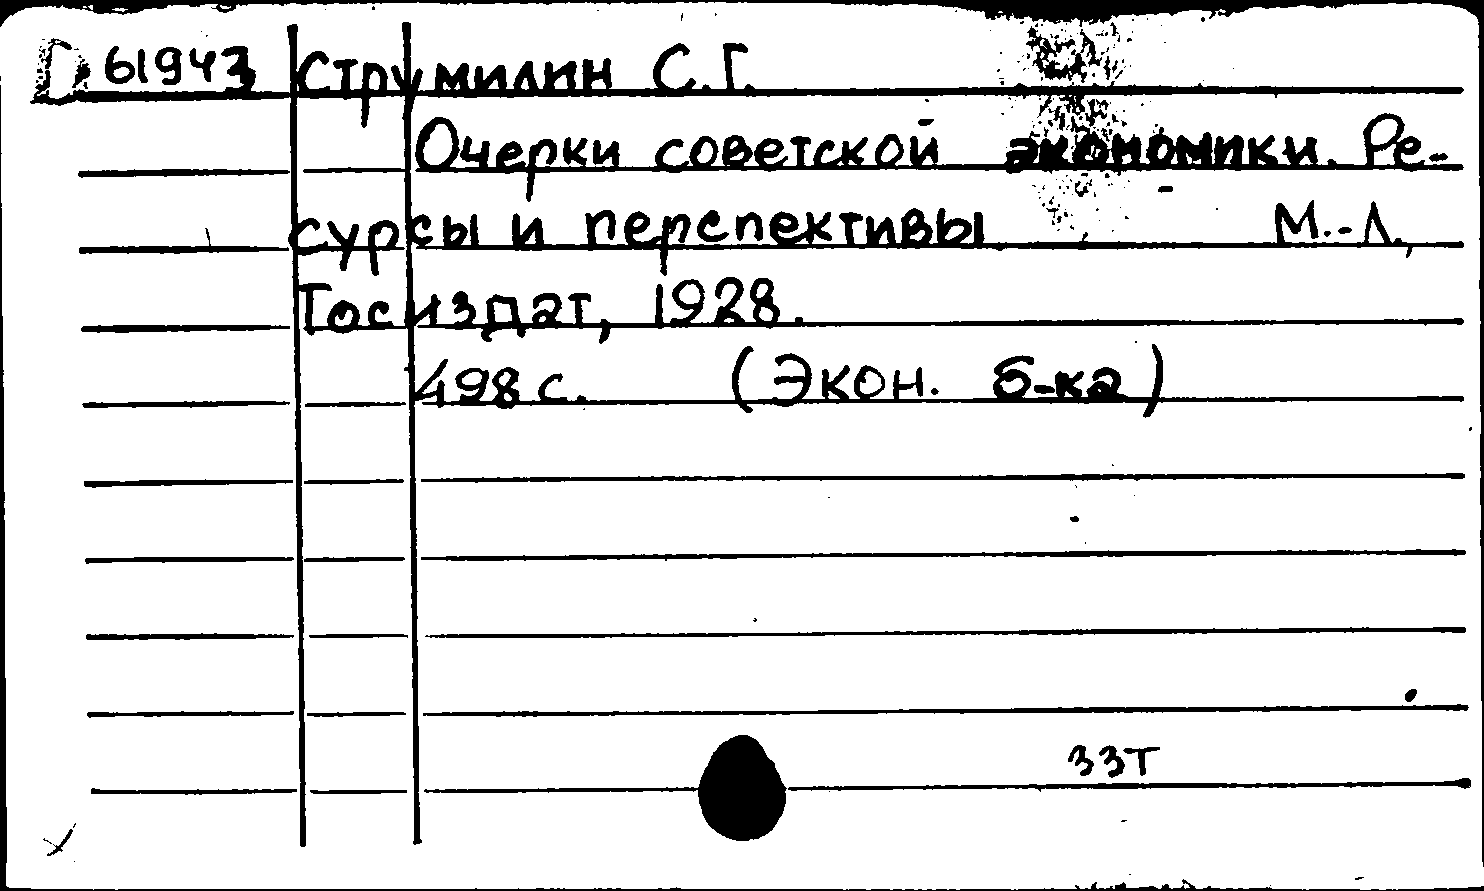 D 61943 Струмилин С.Г.
Очерки советской экономики. Ре-
сурсы и перспективы. М.-Л.,
Госиздат, 1928.
498 с. (Экон. б-ка)
33Т